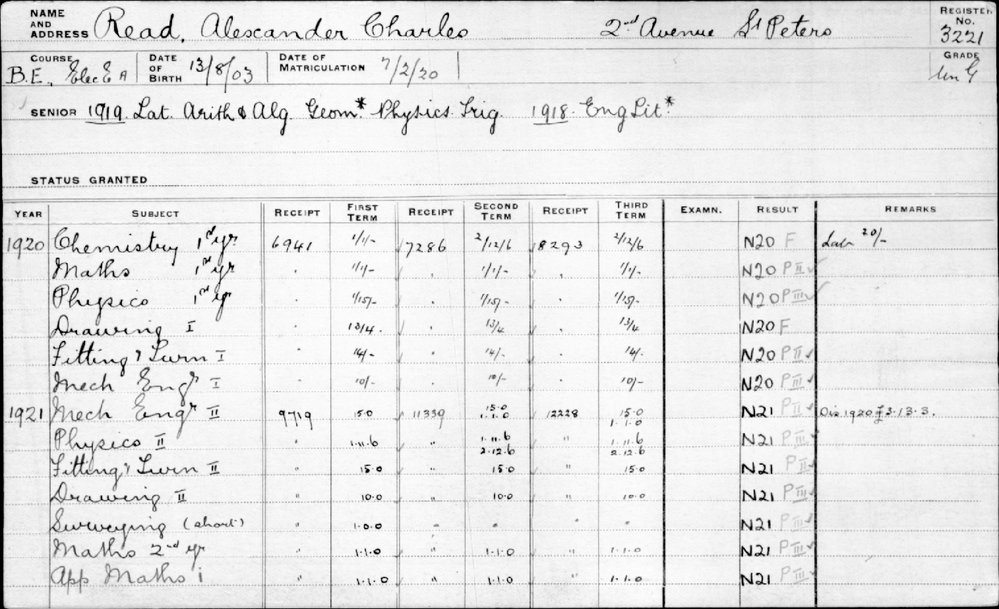 NAME AND ADDRESS Read, Alexander Charles 2nd Avenue St Peters REGISTER No. 3221
COURSE B.E., Elec E A DATE OF BIRTH 13/8/03 DATE OF MATRICULATION 7/2/20 GRADE Un G
SENIOR 1919. Lat. Arith & Alg. Geom.* Physics. Trig. 1918. Eng Lit.*
STATUS GRANTED
YEAR SUBJECT RECEIPT FIRST TERM RECEIPT SECOND TERM RECEIPT THIRD TERM EXAMN. RESULT REMARKS
1920 Chemistry 1st yr 6941 1/1/- 7286 2/12/6 8293 2/12/6 N20 F Lab 20/-
Maths 1st yr " 1/1/- " 1/1/- " 1/1/- N20 P II ✓
Physics 1st yr " 1/15/- " 1/15/- " 1/15/- N20 P III ✓
Drawing I " 13/4 " 13/4 " 13/4 N20 F
Fitting & Turn I " 14/- " 14/- " 14/- N20 P II ✓
Mech Engr I " 10/- " 10/- " 10/- N20 P II ✓
1921 Mech Engr II 9719 15.0 11339 15.0 1.1.0 12228 15.0 1.1.0 N21 P II ✓ Dis 1920 £3.13.3.
Physics II " 1.11.6 " 1.11.6 2.12.6 " 1.11.6 2.12.6 N21 P II ✓
Fitting & Turn II " 15.0 " 15.0 " 15.0 N21 P II ✓
Drawing II " 10.0 " 10.0 " 10.0 N21 P III ✓
Surveying (short) " 1.0.0 " " " " N21 P III ✓
Maths 2nd yr " 1.1.0 " 1.1.0 " 1.1.0 N21 P III ✓
App Maths i " 1.1.0 " 1.1.0 " 1.1.0 N21 P III ✓